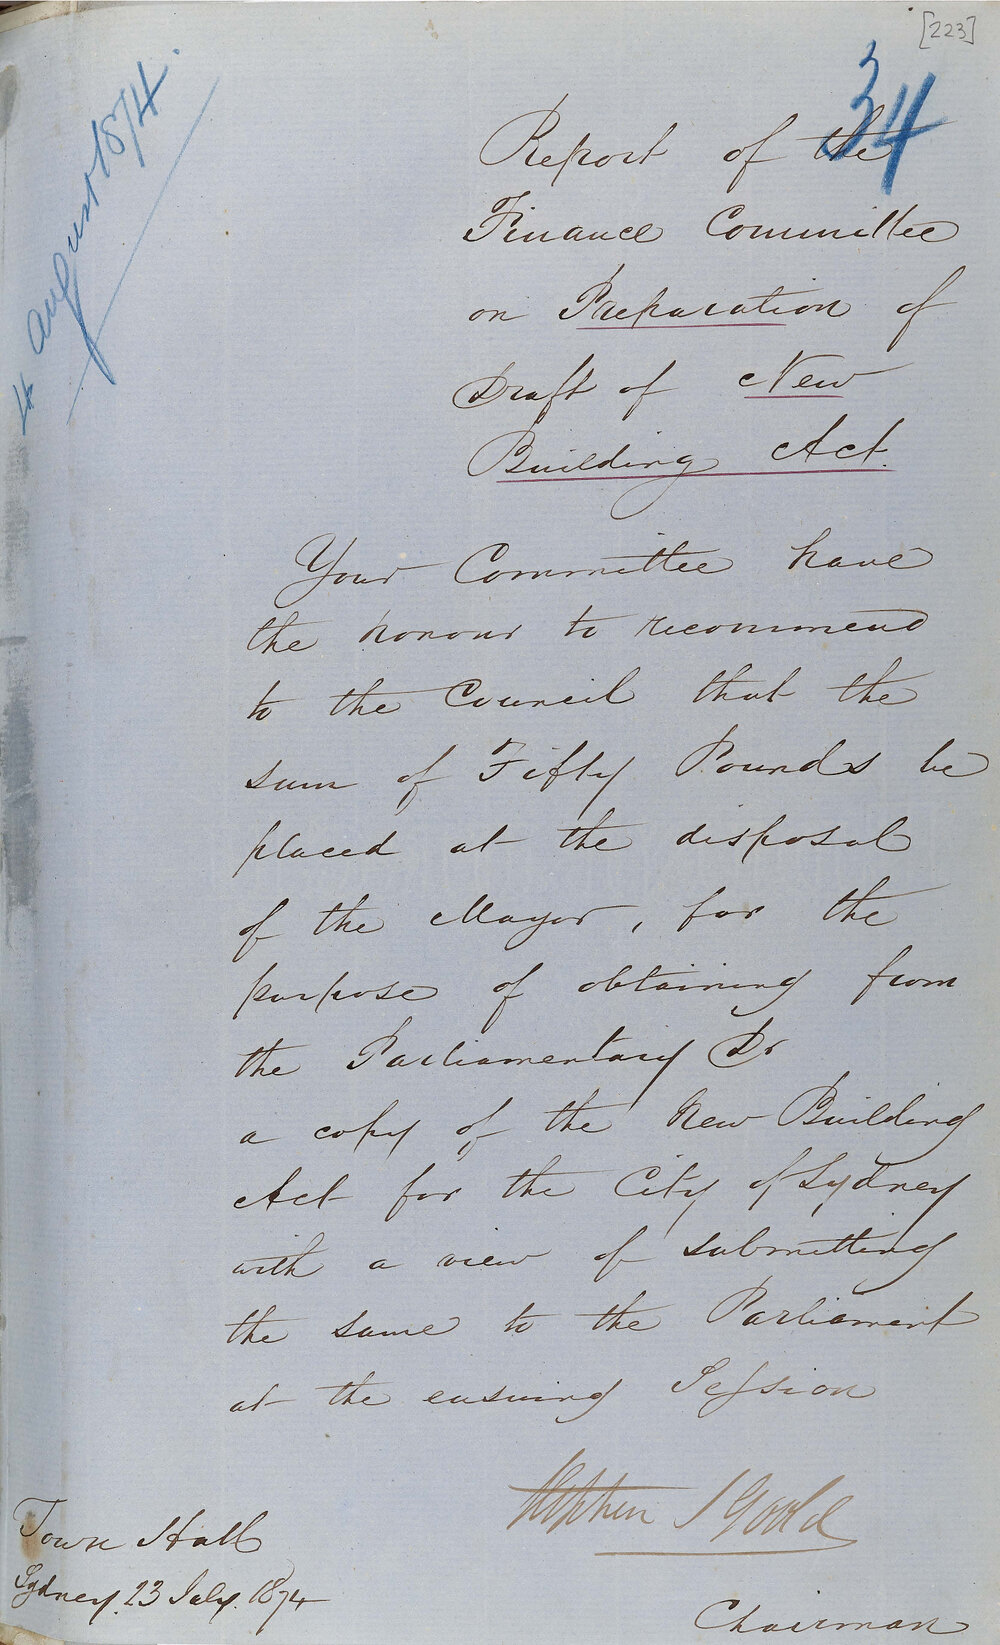 [223]
34
4 August 1874.
Report of the
Finance Committee
on Preparation of
Draft of New
Building Act.
Your Committee have
the honour to recommend
to the Council that the
sum of Fifty Pounds be
placed at the disposal
of the Mayor, for the
purpose of obtaining from
the Parliamentary Dr
a copy of the New Building
Act for the City of Sydney
with a view of submitting
the same to the Parliament
at the ensuing Session
Stephen S Goold
Chairman
Town Hall
Sydney. 23 July. 1874